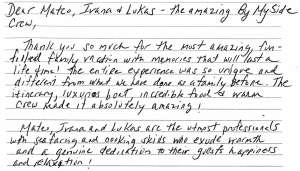 Dear Mateo, Ivana & Lukas - the amazing By My Side
Crew,
Thank you so much for the most amazing, fun-
filled family vacation with memories that will last a
life time! The entire experience was so unique and
different from what we have done as a family before. The
itinerary, luxurios boat, incredible food & warm
crew made it absolutely amazing!
Mateo, Ivana and Lukas are the utmost professionals
with seafaring and cooking skills who exude warmth
and a genuine dedication to their guests happiness
and relaxation!